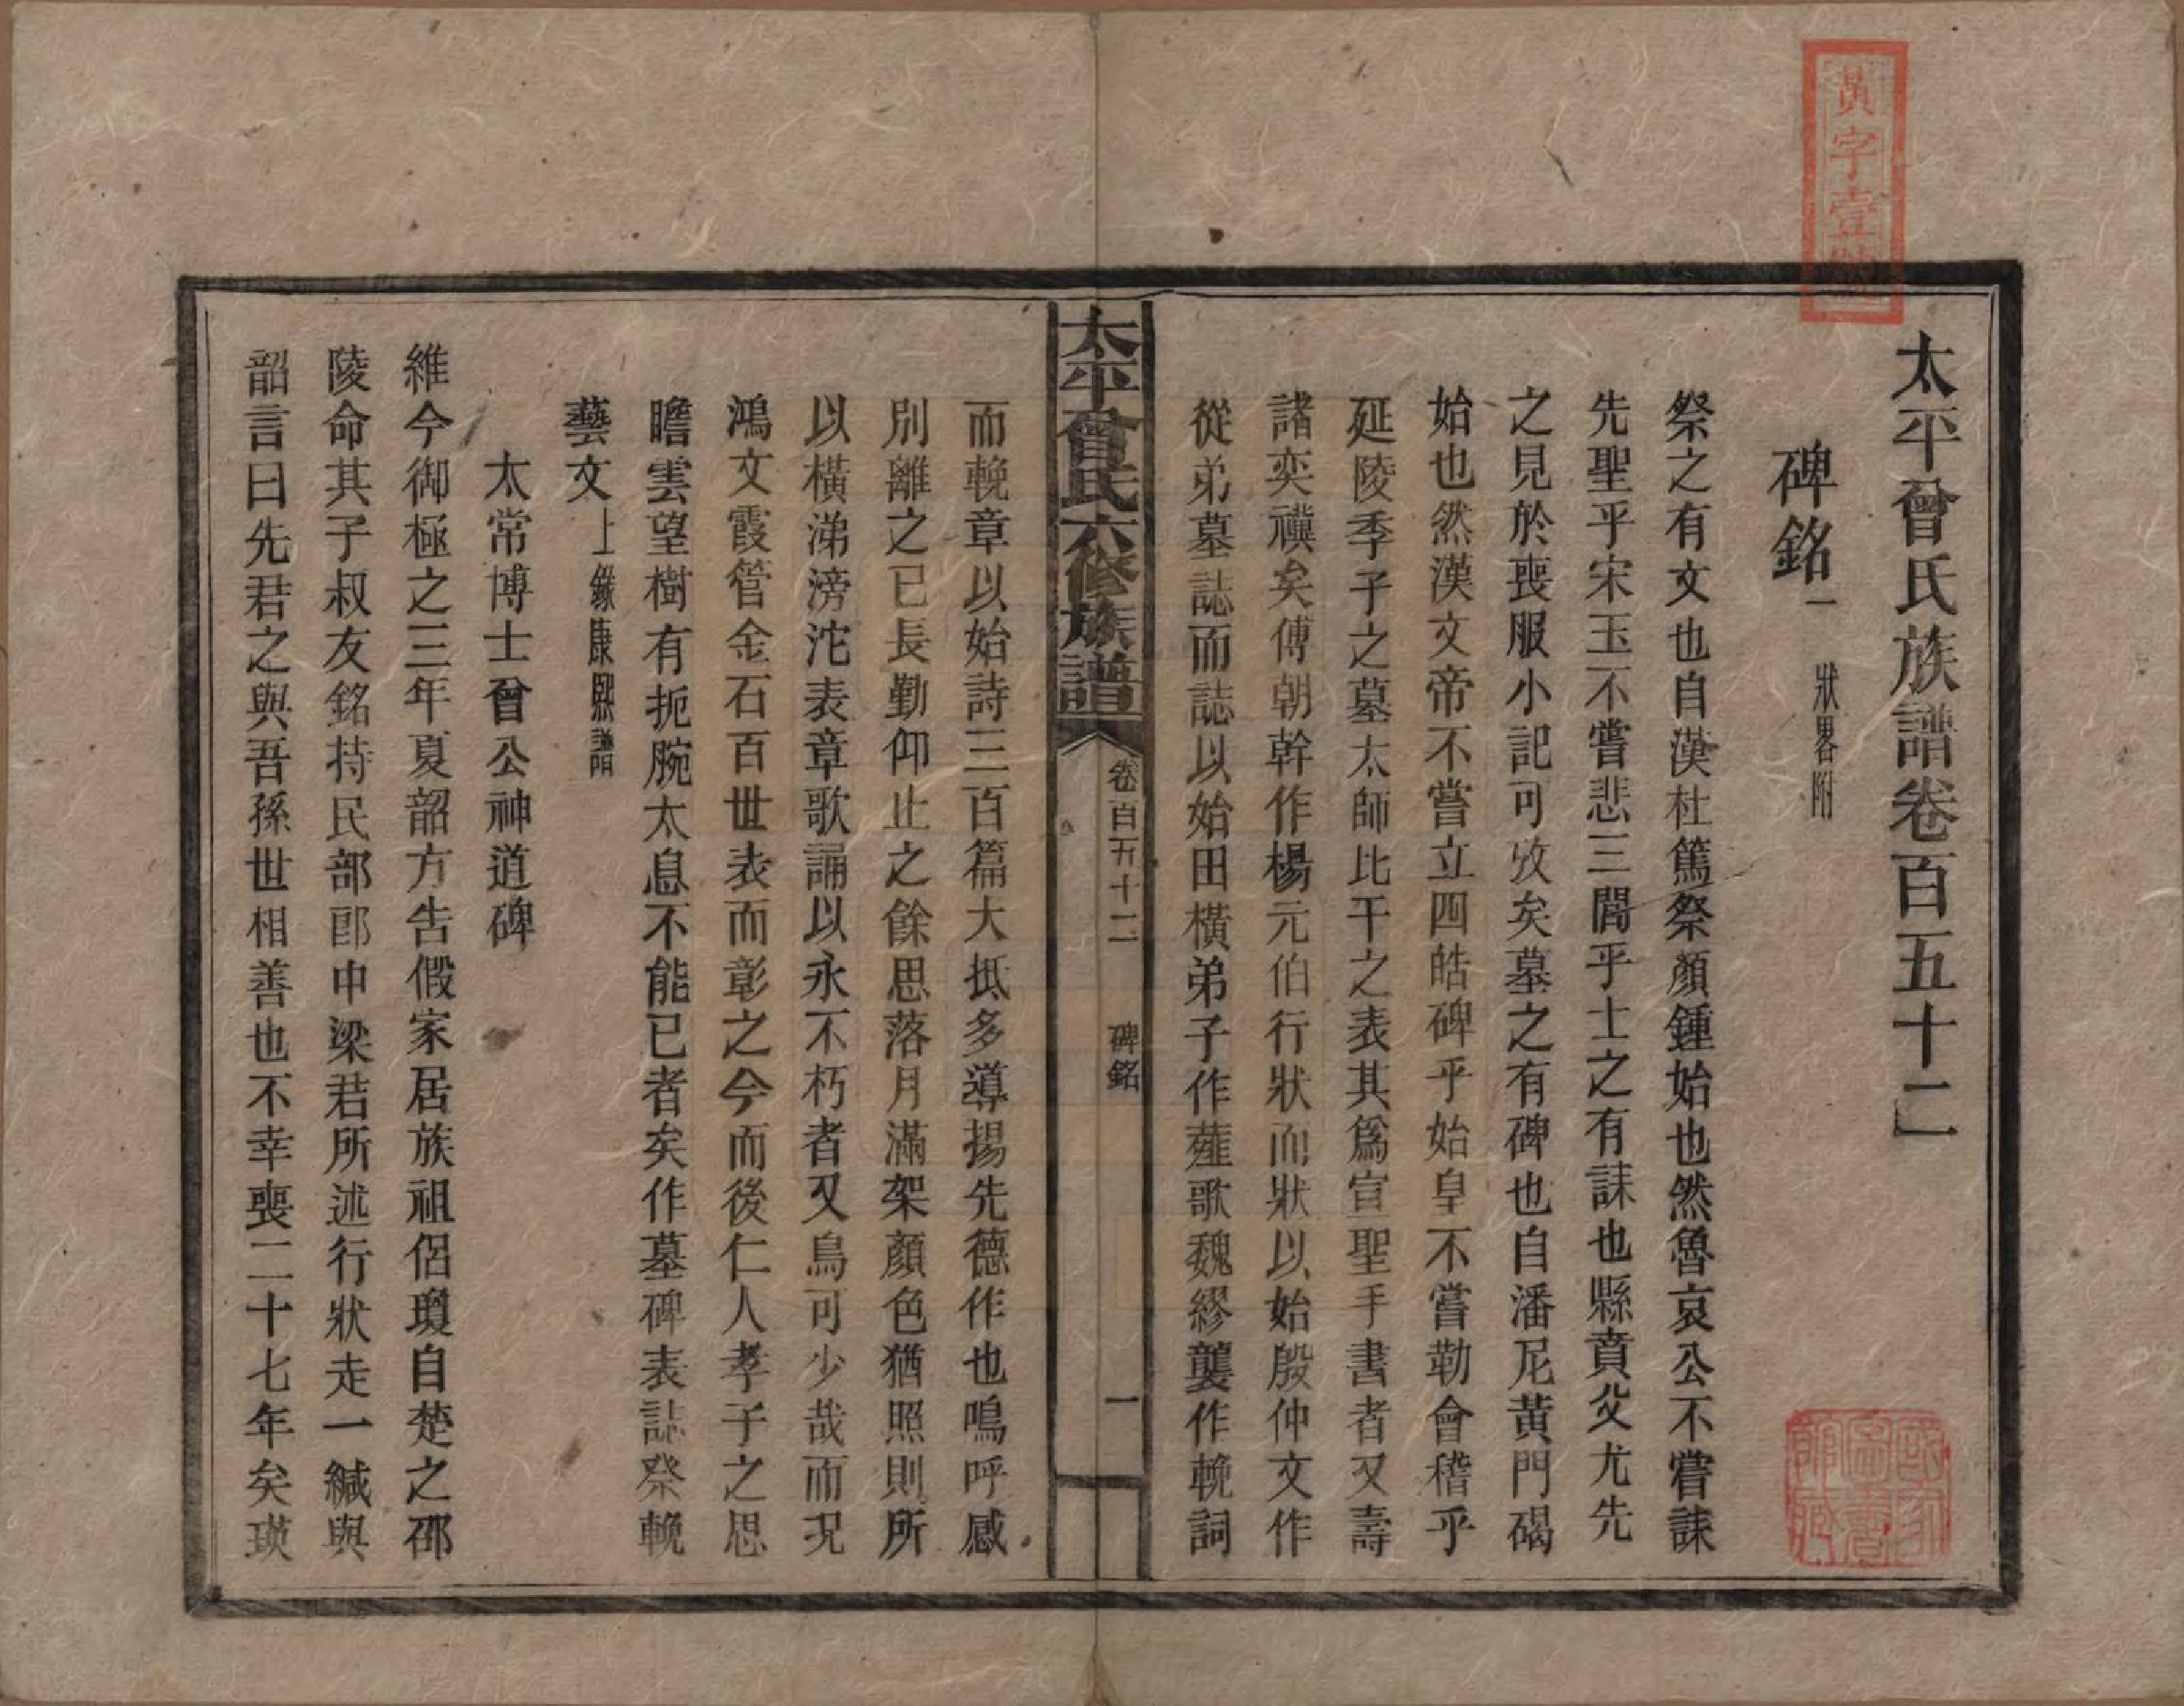 太平曾氏族譜卷百五十二
碑銘一 狀畧附
祭之有文也自漢杜篤祭顏鍾始也然魯哀公不嘗誄
先聖乎宋玉不嘗悲三閭乎士之有誄也縣賁父尤先
之見於喪服小記可攷矣墓之有碑也自潘尼黃門碣
始也然漢文帝不嘗立四皓碑乎始皇不嘗勒會稽乎
延陵季子之墓太師比干之表其爲宣聖手書者又壽
諸奕禩矣傅朝幹作楊元伯行狀而狀以始殷仲文作
從弟墓誌而誌以始田橫弟子作薤歌魏繆襲作輓詞
太平曾氏六修族譜 卷百五十二 碑銘 一
而輓章以始詩三百篇大抵多導揚先德作也鳴呼感
別離之已長勤仰止之餘思落月滿架顏色猶照則所
以橫涕滂沱表章歌誦以永不朽者又烏可少哉而況
鴻文霞管金石百世表而彰之今而後仁人孝子之思
瞻雲望樹有扼腕太息不能已者矣作墓碑表誌祭輓
藝文 上錄康熙譜
太常博士曾公神道碑
維今御極之三年夏韶方告假家居族祖侶瓊自楚之邵
陵命其子叔友銘持民部郎中梁君所述行狀走一緘與
韶言曰先君之與吾孫世相善也不幸喪二十七年矣瑛
黃字壹號
國家圖書館藏